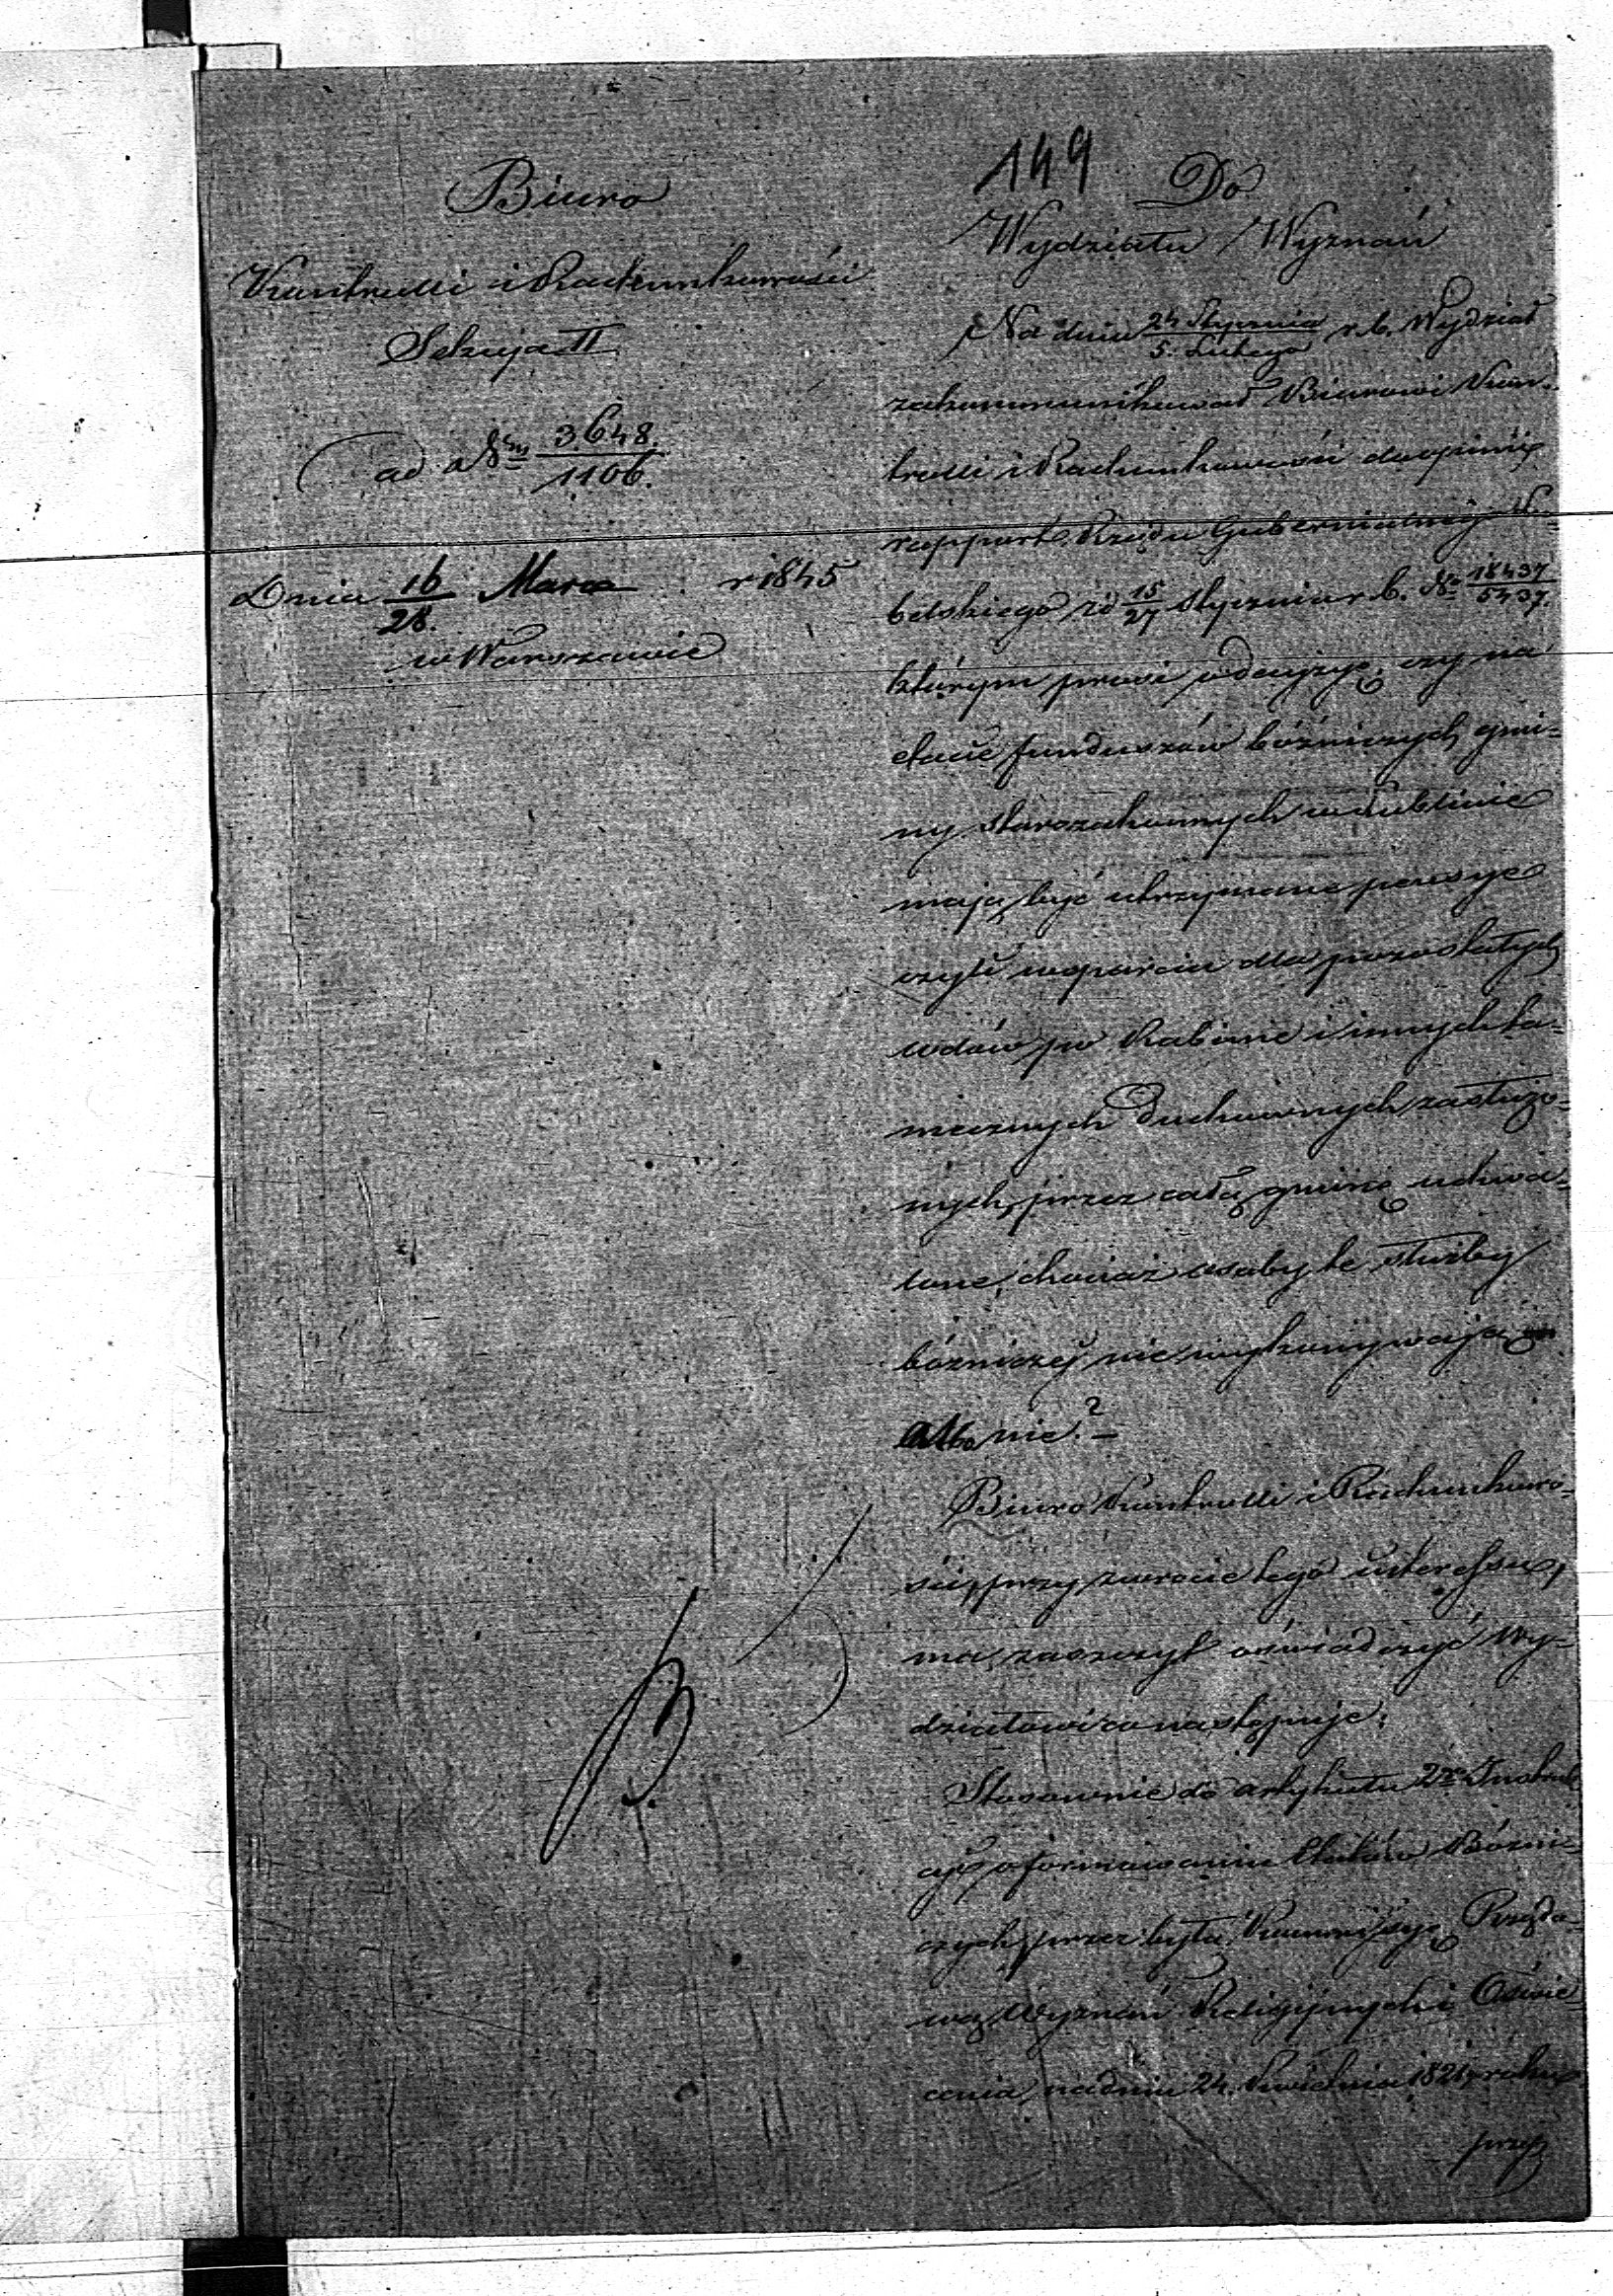 149
Biuro
Kontrolli i Rachunkowości
Sekcja II
ad Nm 3648/1106.
Dnia 16/28. Marca r 1845
w Warszawie
Do
Wydziału Wyznań
Na dniu 24 Stycznia/5. Lutego r. b. Wydział
zakommunikował Biurowi Kon-
trolli i Rachunkowości do opinij
rapport Rządu Gubernialnego Lu-
belskiego z d 15/27 Stycznia r. b. No 18437/5437.
którym prosi o decyzyę, czy na
etacie funduszów bóźniczych gmi-
ny starozakonnych w Lublinie
mają być utrzymane pensye
czyli wsparcia dla pozostałych
wdów po Rabinie i innych ta-
mecznych Duchownych zasłużo-
nych, przez całą gminę uchwa-
lone, chociaż osoby te służby
bóżniczej nie wykonywają
albo nie?
Biuro Kontrolli i Rachunkowo-
ści, przy zwrocie tego interessu,
ma zaszczyt oświadczyć Wy-
działowi co następuje:
Stosownie do artykułu 2go Instruk
cyi o formowaniu Etatów Bóżni-
czych, przez byłą Kommissyę Rządo-
wą Wyznań Religijnych i Oświe-
cenia na dniu 24. Kwietnia 1821 roku
przep